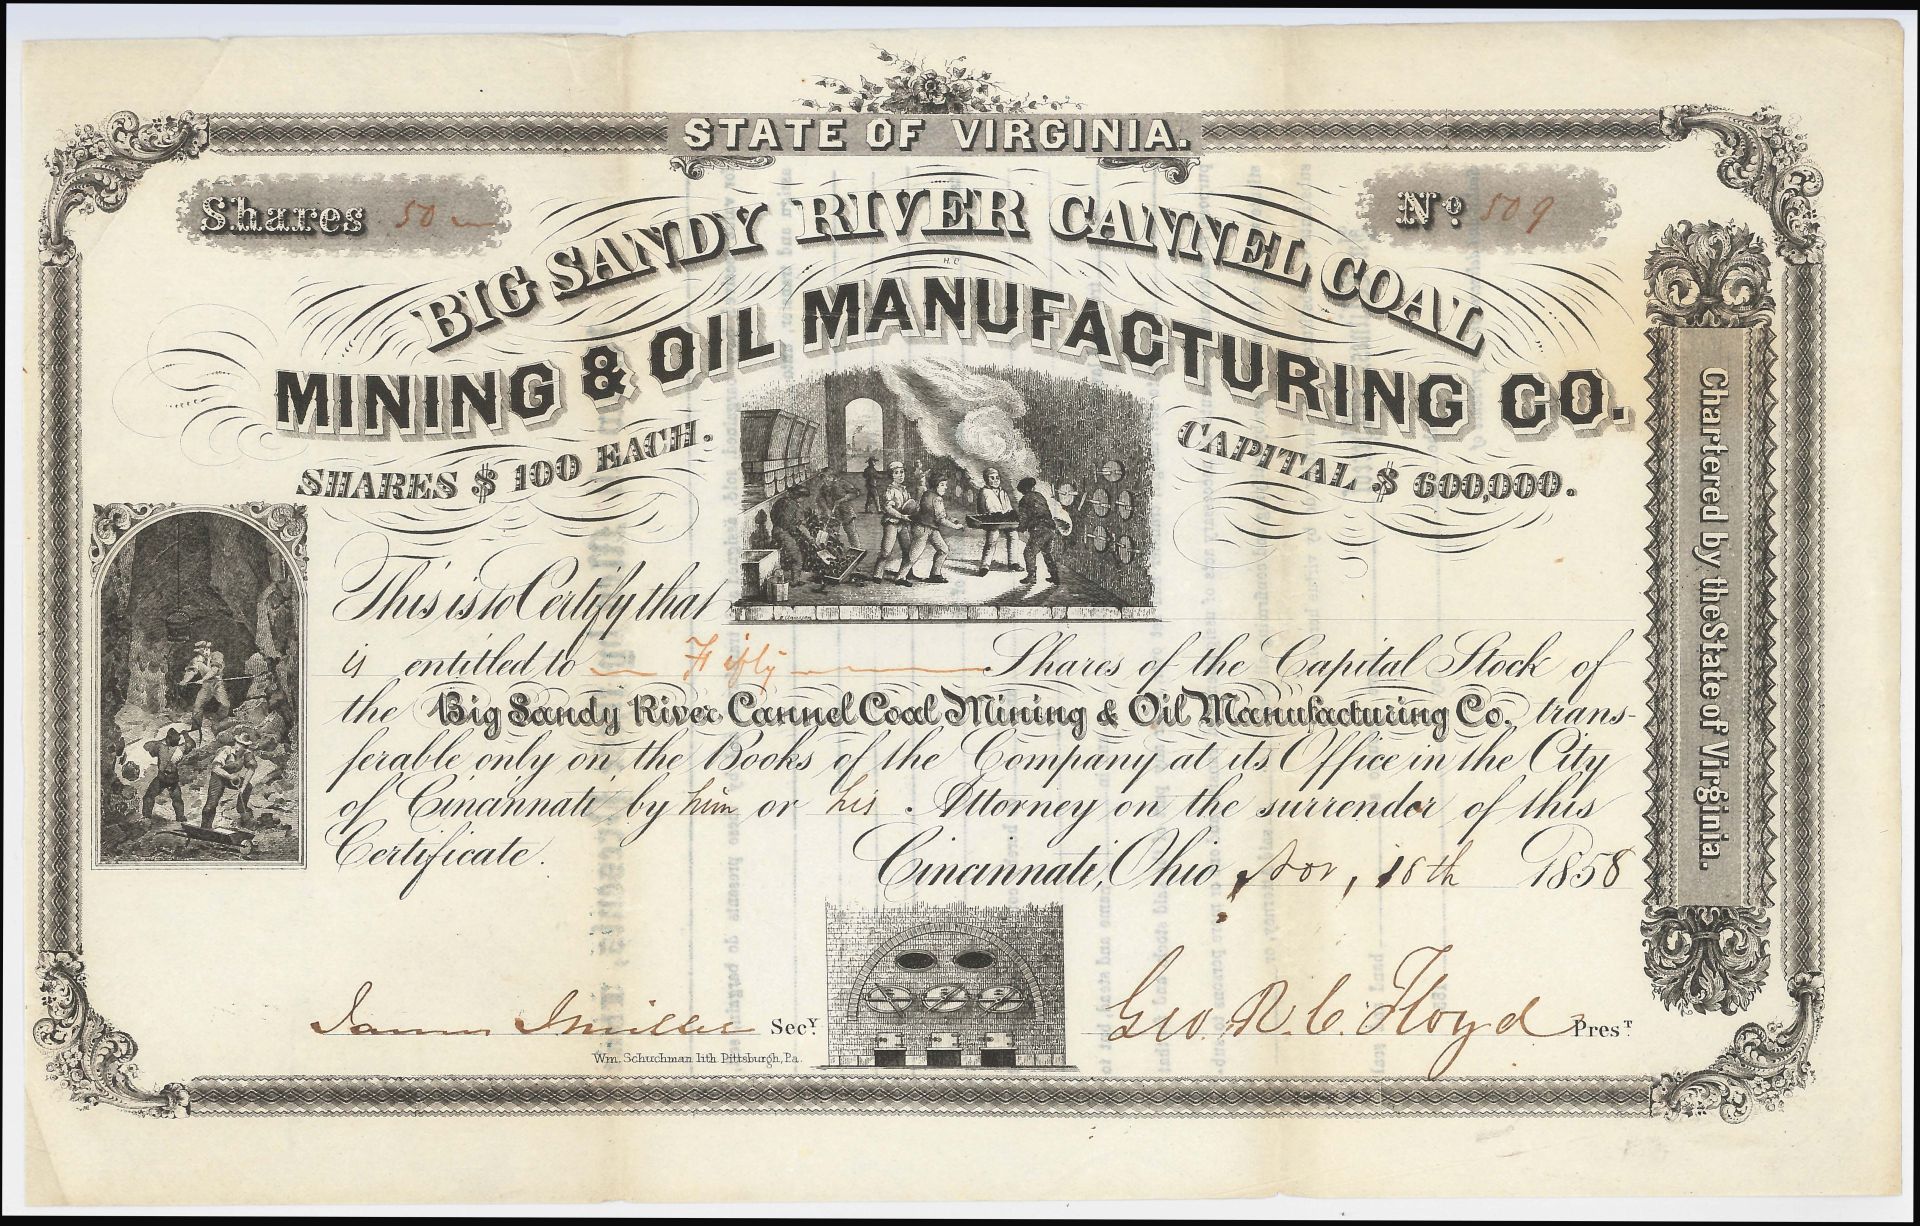 STATE OF VIRGINIA.
Shares 50
No. 509
BIG SANDY RIVER CANNEL COAL
MINING & OIL MANUFACTURING CO.
SHARES $ 100 EACH.
CAPITAL $ 600,000.
This is to Certify that
is entitled to Fifty Shares of the Capital Stock of
the Big Sandy River Cannel Coal Mining & Oil Manufacturing Co. trans-
ferable only on the Books of the Company at its Office in the City
of Cincinnati by him or his Attorney on the surrender of this
Certificate.
Cincinnati, Ohio Nov, 18th 1858
Secy.
Geo. R. C. Floyd Prest.
Wm. Schuchman lith Pittsburgh, Pa.
Chartered by the State of Virginia.